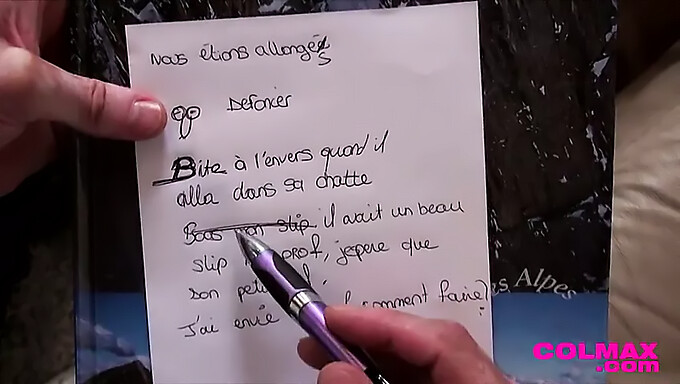 Nous étions allongés
Defoncer
Bite à l'envers quand il
alla dans sa chatte
Sous mon slip il avait un beau
slip prof, j'epere que
son petit
J'ai envie comment faire?
es Alpes
COLMAX
.com